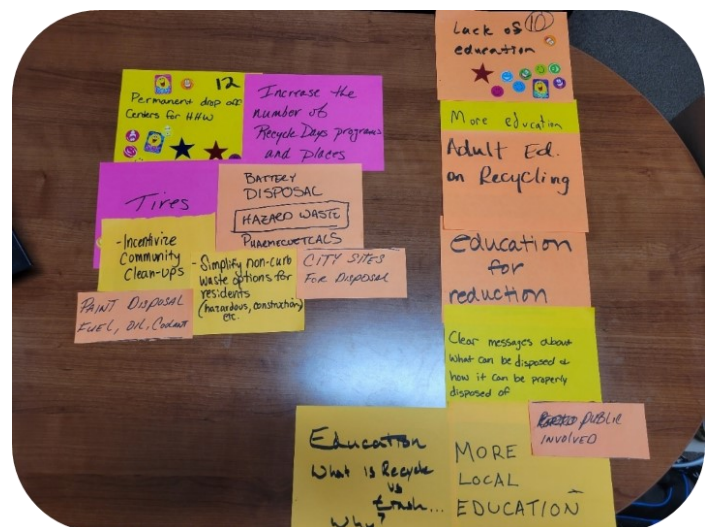 12
Permanent drop off
Centers for HHW
Increase the
number of
Recycle Days programs
and places
Tires
BATTERY
DISPOSAL
HAZARD WASTE
PHARMECUETCALS
-Incentivize
Community
Clean-ups
-Simplify non-curb
waste options for
residents
(hazardous, construction)
etc.
CITY SITES
FOR DISPOSAL
PAINT DISPOSAL
FUEL, OIL, Coolant
Lack of
education
10
More education
Adult Ed.
on Recycling
education
for
reduction
Clear messages about
what can be disposed &
how it can be properly
disposed of
PUBLIC
INVOLVED
Education
What is Recycle
vs
trash...
Why?
MORE
LOCAL
EDUCATION